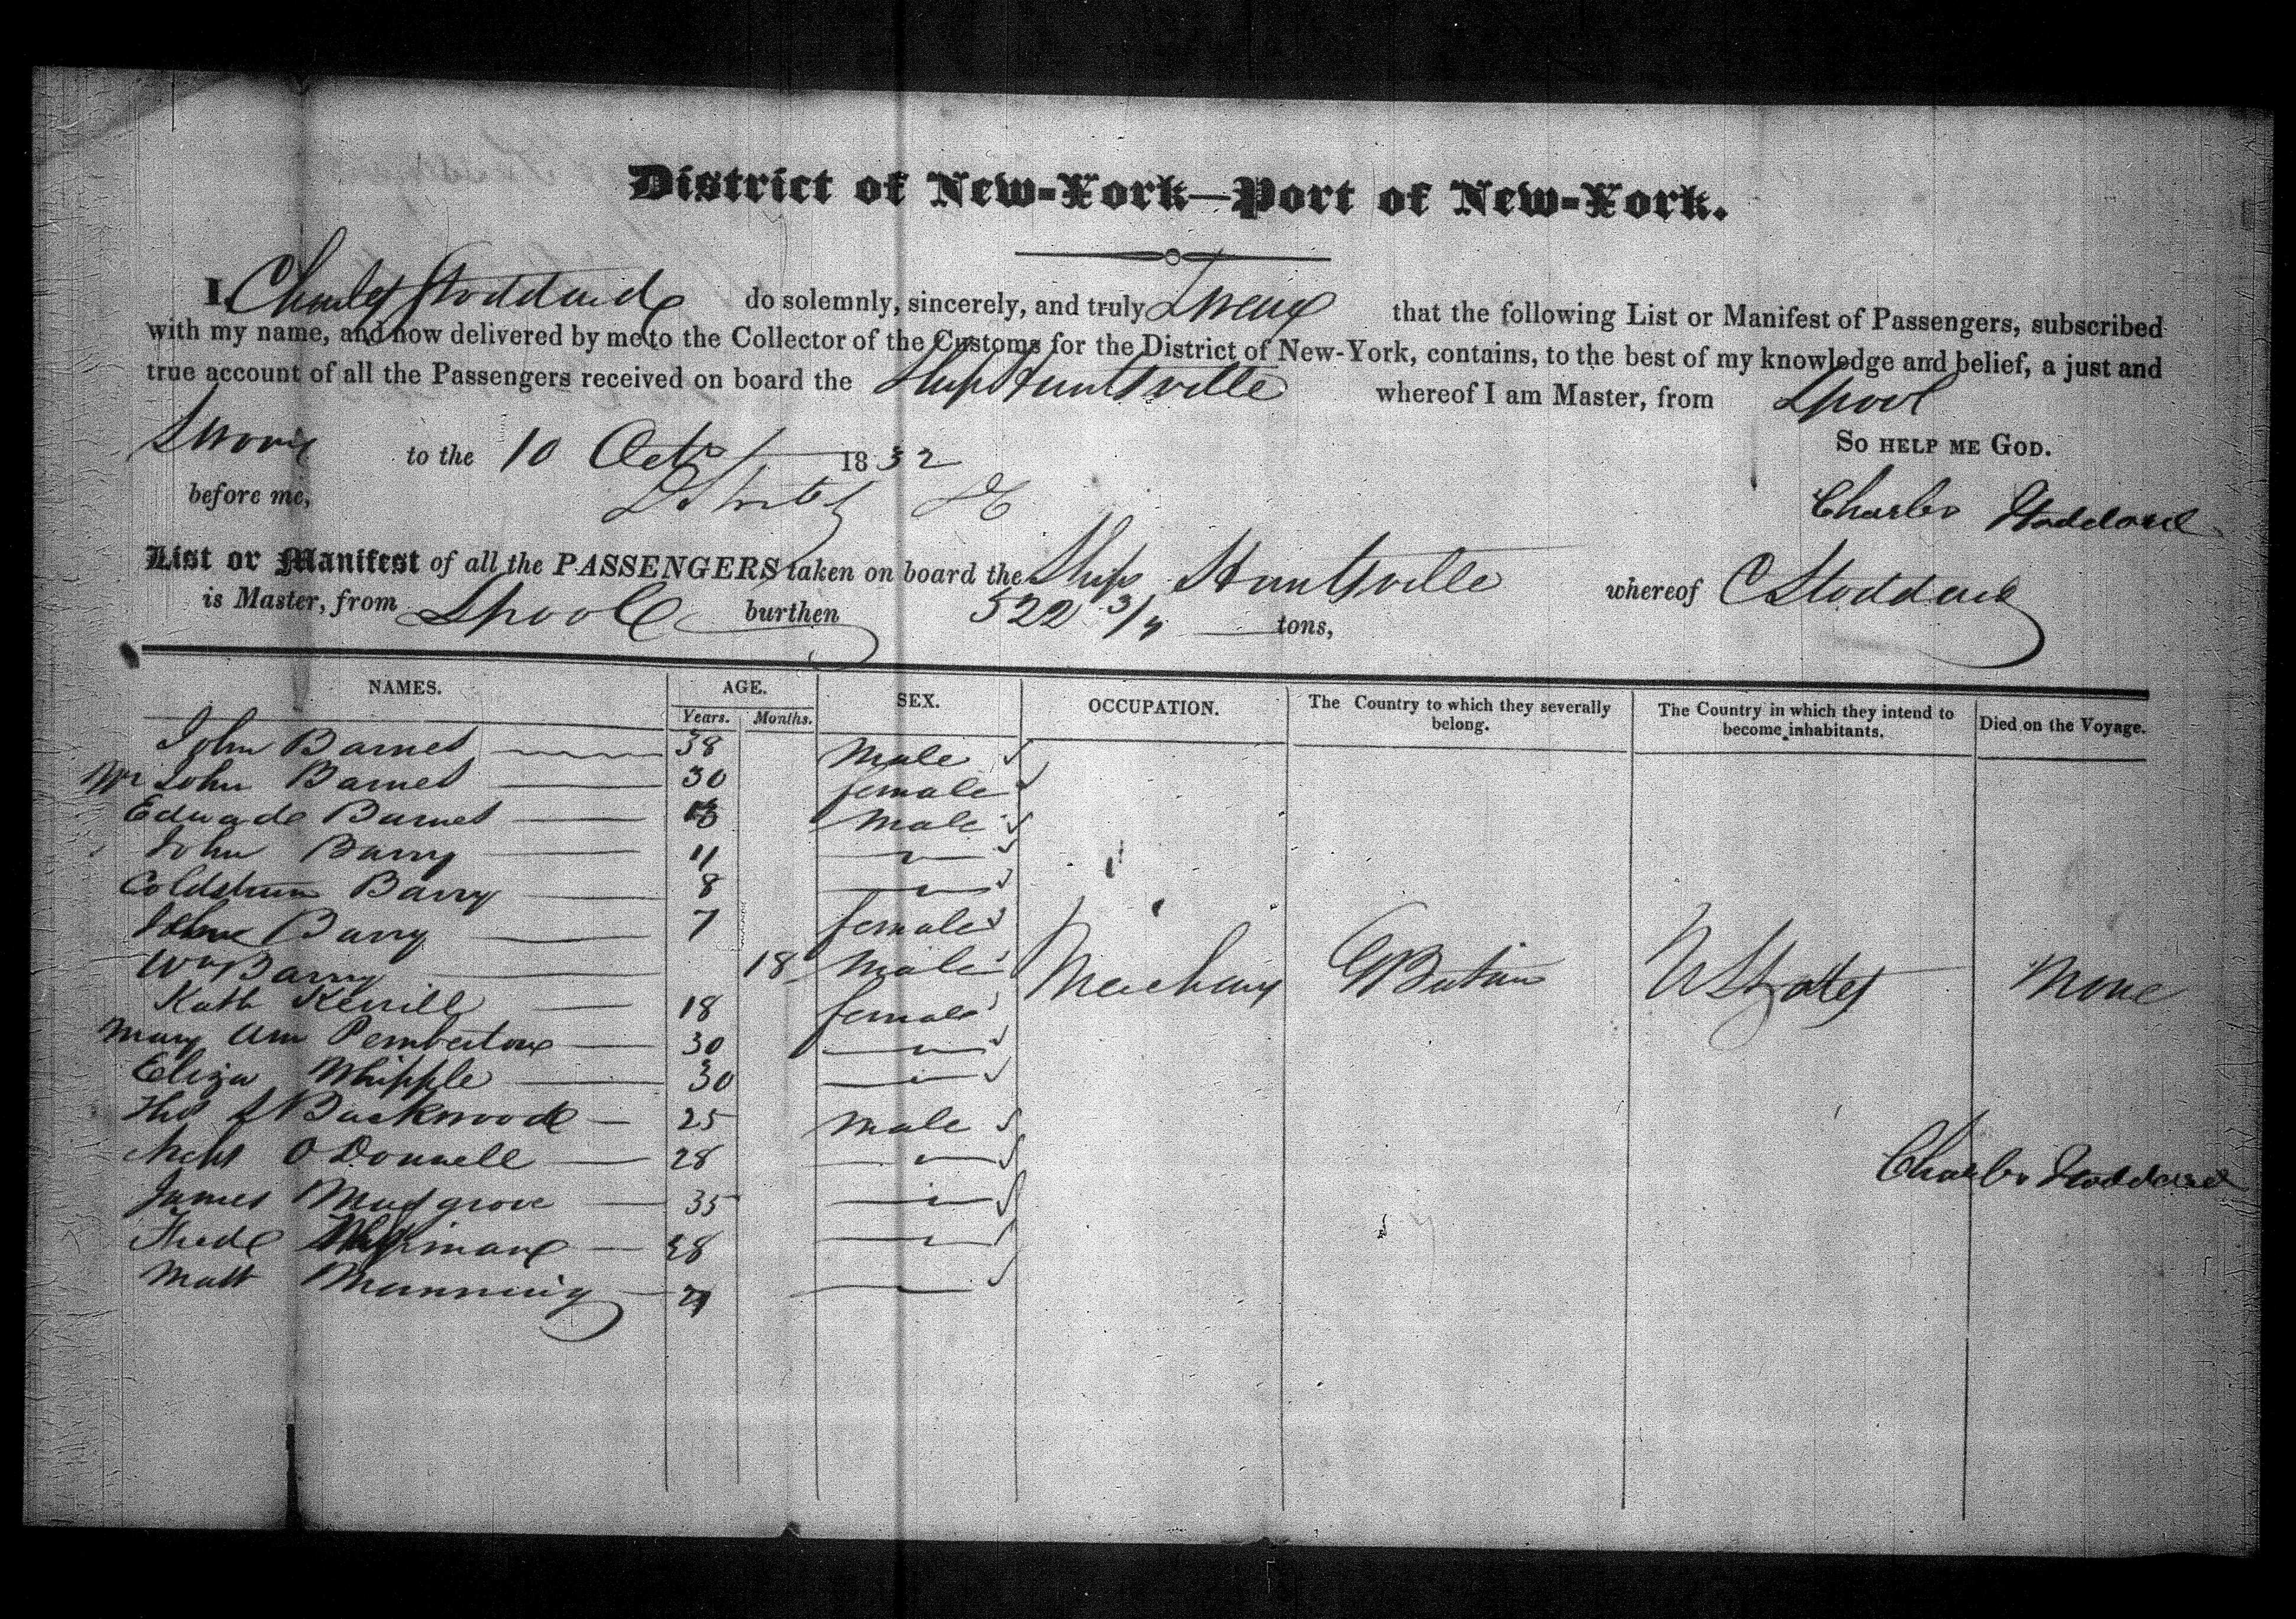 District of New-York—Port of New-York.
I, Charles Stoddard do solemnly, sincerely, and truly Swear that the following List or Manifest of Passengers, subscribed
with my name, and now delivered by me to the Collector of the Customs for the District of New-York, contains, to the best of my knowledge and belief, a just and
true account of all the Passengers received on board the Ship Huntsville whereof I am Master, from Lpool
Sworn to the 10 Octr 1832 So help me God.
before me, Charles Stoddard
List or Manifest of all the PASSENGERS taken on board the Ship Huntsville whereof C Stoddard
is Master, from Lpool burthen 522 3/4 tons,
NAMES. AGE. SEX. OCCUPATION. The Country to which they severally belong. The Country in which they intend to become inhabitants. Died on the Voyage.
Years. Months.
John Barnes 38 Male
Mr John Barnes 30 female
Edwade Barnes 13 Male
John Barry 11
Barry 8
Barry 7 female
Wm Barry 18 Male Merchany G Britain U States None
Kath 18 female
Mary Ann Pemberton 30
Eliza Whipple 30
Thos L Backwood 25 male
Nichs O Donnell 28
James Musgrove 35
Fredk 28
Matt Manning 21
Charles Stoddard